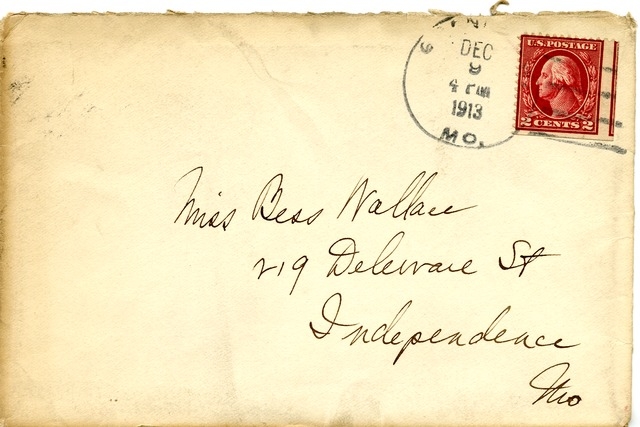 DEC
9
4 PM
1913
MO.
U.S. POSTAGE
2 CENTS 2
Miss Bess Wallace
219 Deleware St
Independence
Mo